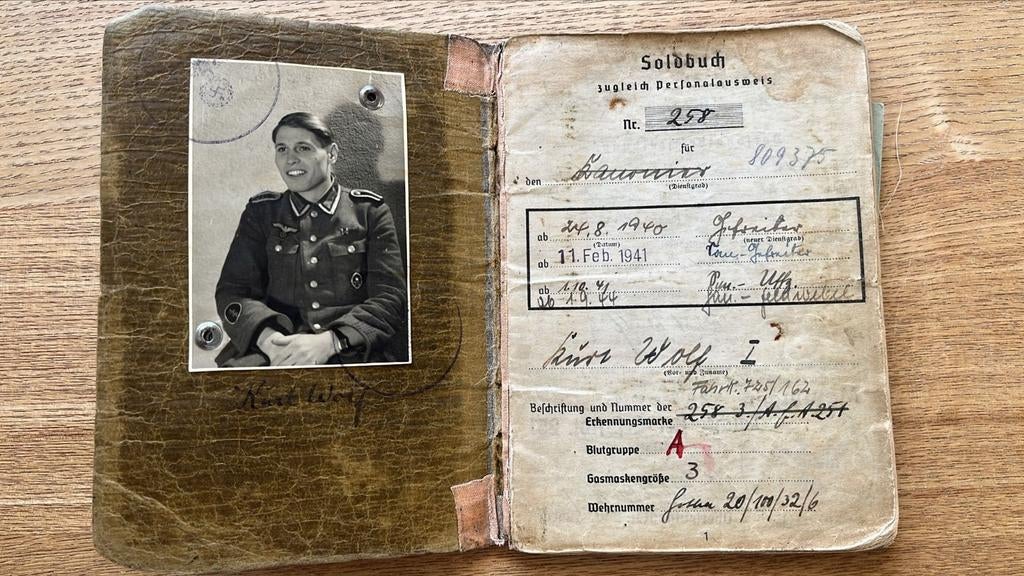 Kurt Wolf
Soldbuch
zugleich Personalausweis
Nr. 258
für
809375
den Kanonier
(Dienstgrad)
ab 24.8.1940 Gefreiter
(Datum) (neuer Dienstgrad)
ab 11. Feb. 1941 San.-Gefreiter
ab 1.10.41 San.- Uffz.
ab 1.9.44 San.- Feldwebel
Kurt Wolf I
(Vor- und Zuname)
725/162
Beschriftung und Nummer der
Erkennungsmarke 258 3./
Blutgruppe A
Gasmaskengröße 3
Wehrnummer Gotha 20/100/32/6
1